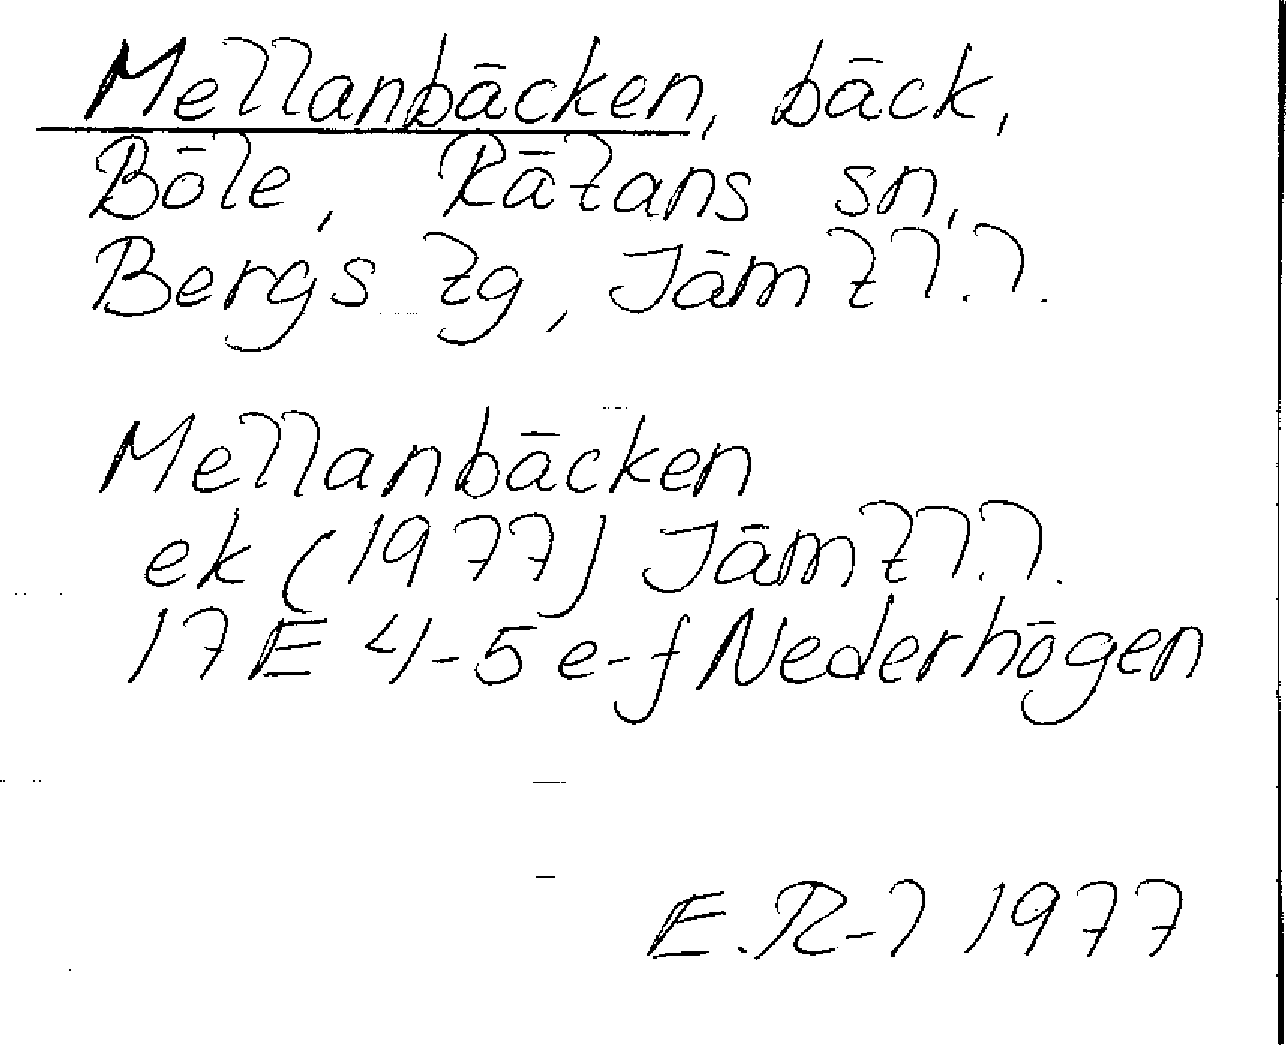 Mellanbäcken, bäck,
Böle, Rätans sn,
Bergs tg, Jämtl.l.
Mellanbäcken
ek (1977) Jämtl.l.
17E 4-5 e-f Nederhögen
E.R-l 1977